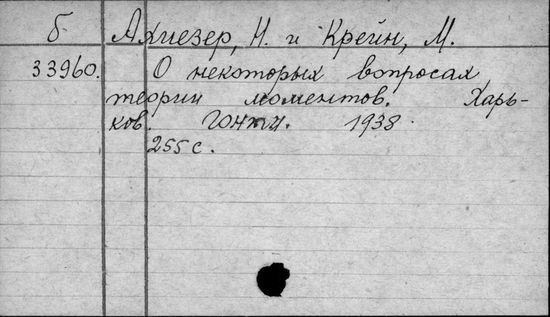 Б Ахиезер, Н. и Крейн, М.
33960. О некоторых вопросах
теории моментов. Харь-
ков. ГОНТИ. 1938.
255 с.